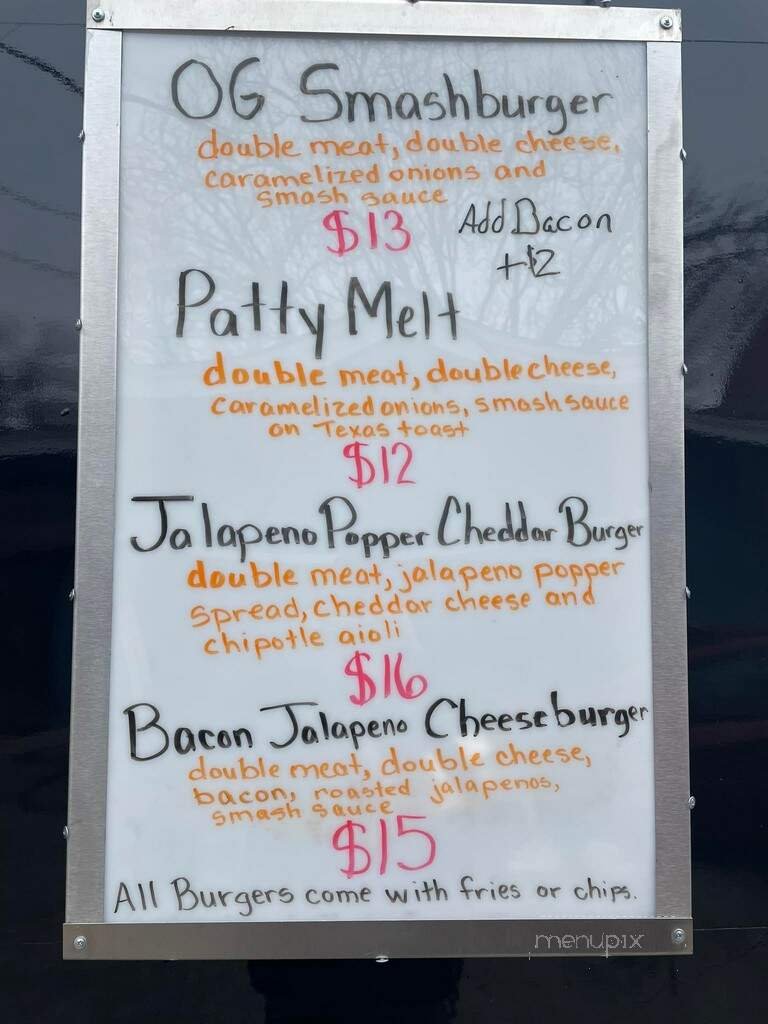 OG Smashburger
double meat, double cheese,
caramelized onions and
smash sauce
$13
Add Bacon
+$2
Patty Melt
double meat, double cheese,
caramelized onions, smash sauce
on Texas toast
$12
Jalapeno Popper Cheddar Burger
double meat, jalapeno popper
spread, cheddar cheese and
chipotle aioli
$16
Bacon Jalapeno Cheeseburger
double meat, double cheese,
bacon, roasted jalapenos,
smash sauce
$15
All Burgers come with fries or chips.
menupix